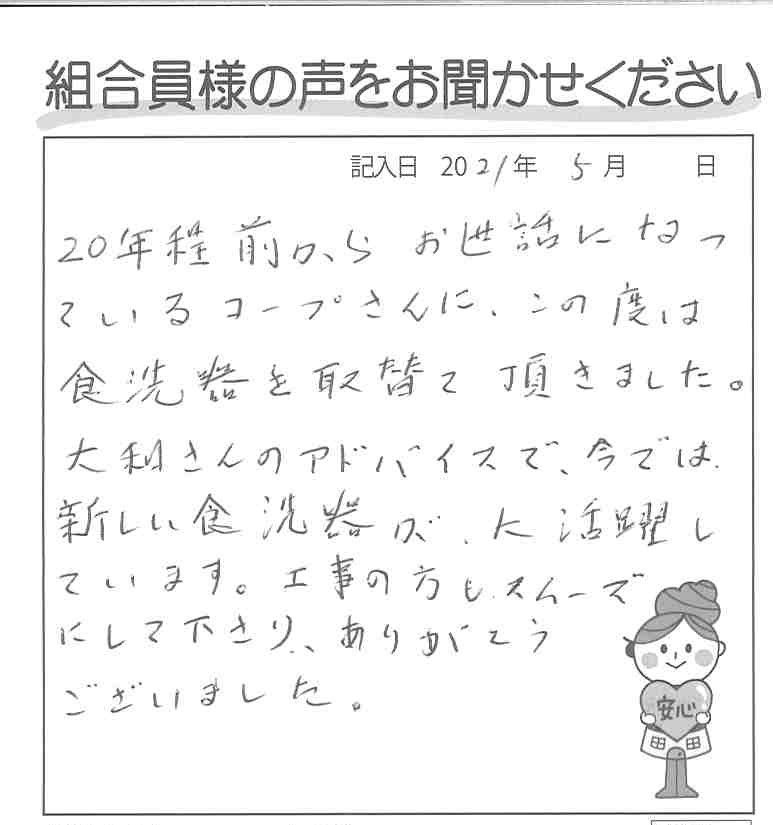 組合員様の声をお聞かせください
記入日 2021年 5月 日
20年程前からお世話になっ
ているコープさんに、この度は
食洗器を取替て頂きました。
大利さんのアドバイスで、今では、
新しい食洗器が、大活躍し
ています。工事の方も、スムーズ
にして下さり、ありがとう
ございました。
安心